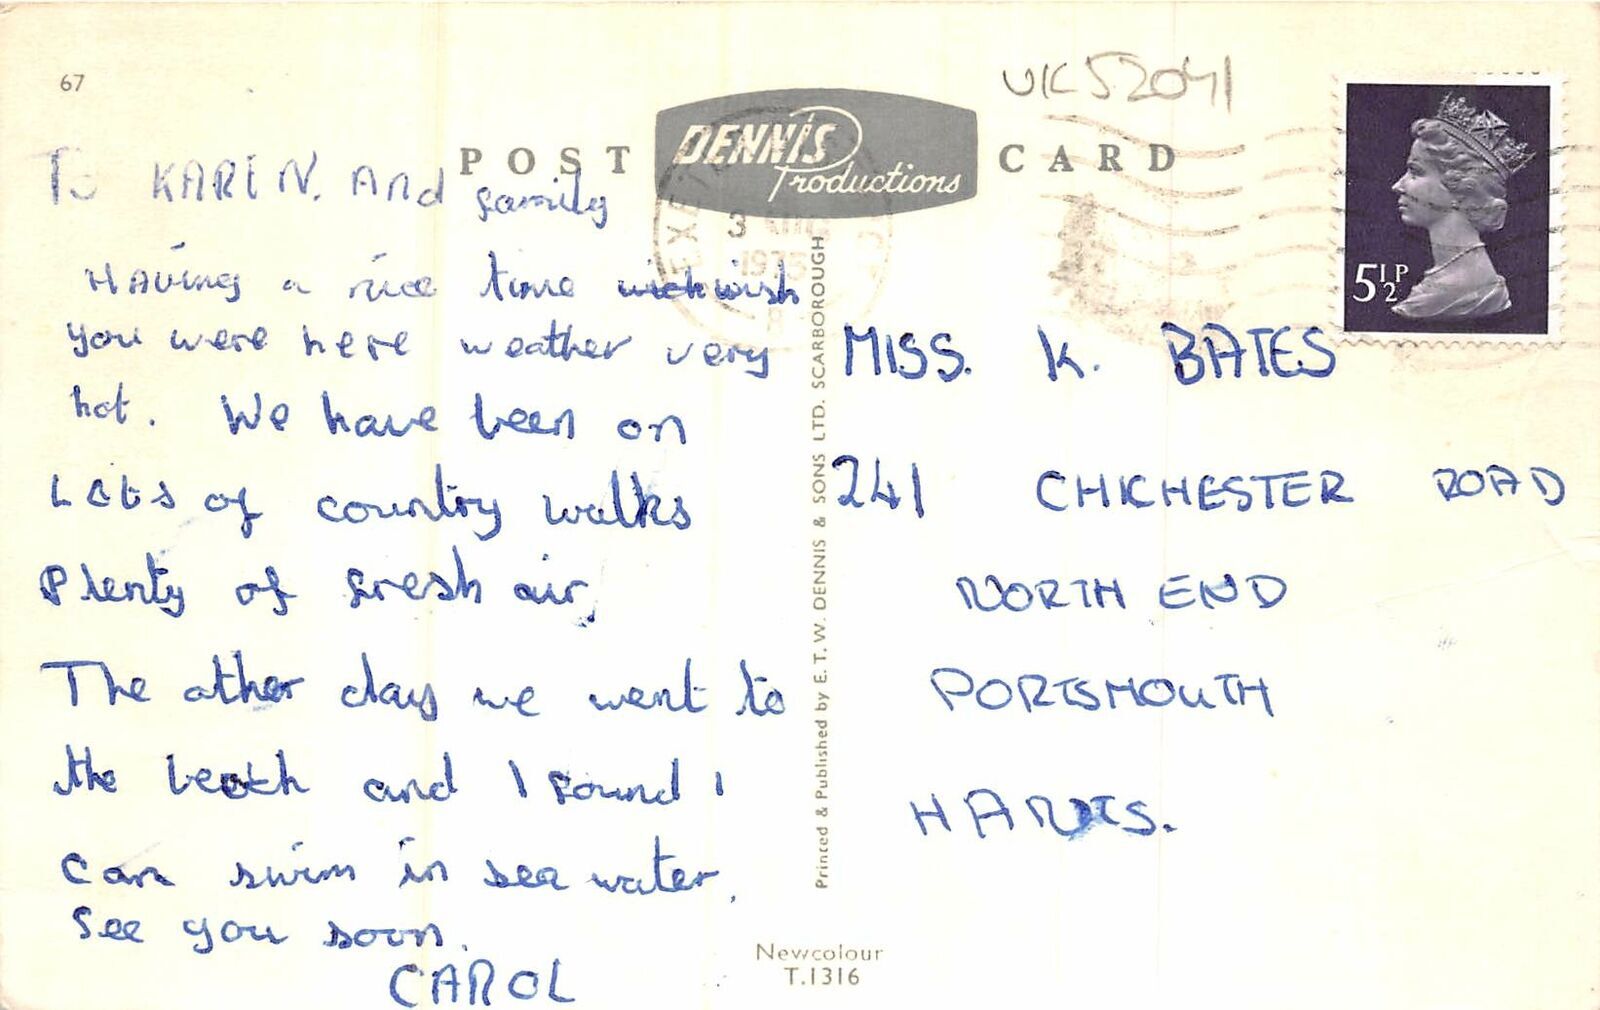 67
UK52041
POST CARD
DENNIS
Productions
EXETER
3 AUG
1973
5½P
To KAREN. And family
Having a nice time wish
you were here weather very
hot. We have been on
Lots of country walks
Plenty of fresh air,
The other day we went to
the beach and I found I
can swim in sea water.
See you soon.
CAROL
Printed & Published by E. T. W. DENNIS & SONS LTD. SCARBOROUGH
MISS. K. BATES
241 CHICHESTER ROAD
NORTH END
PORTSMOUTH
HANTS.
Newcolour
T.1316